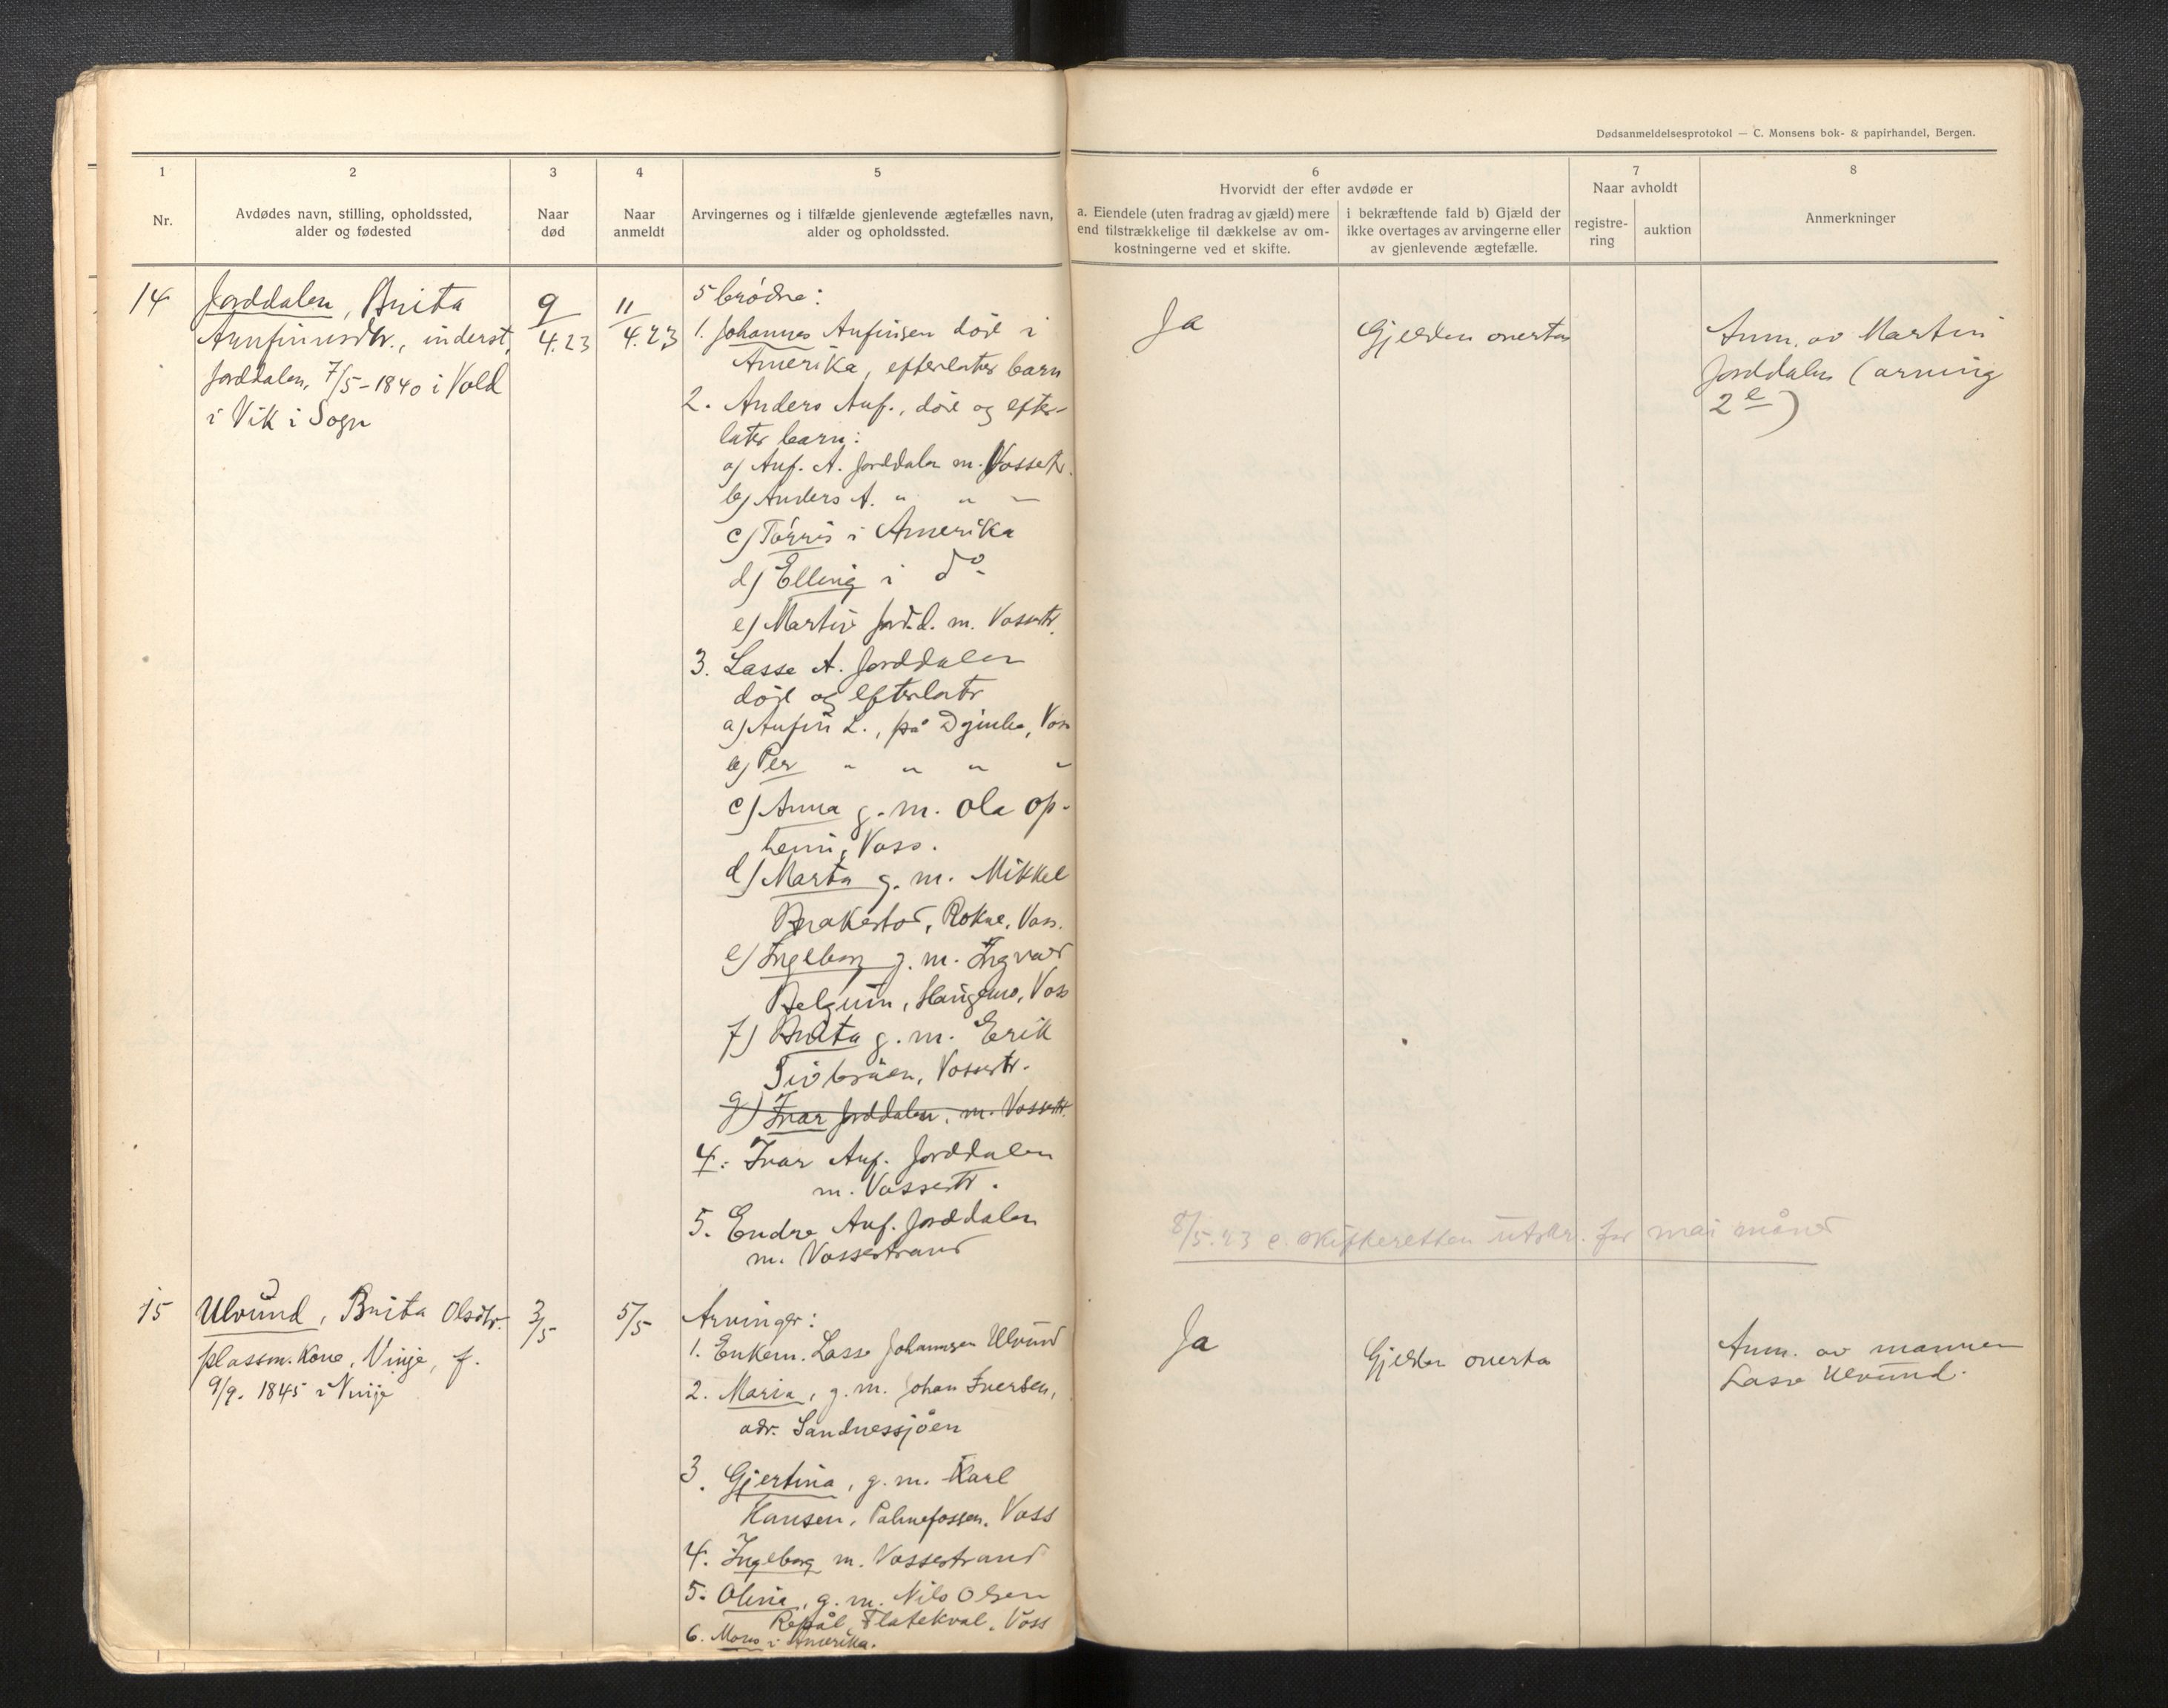 Dødsanmeldelsesprotokol — C. Monsens bok- & papirhandel, Bergen.
1
Nr.
2
Avdødes navn, stilling, opholdssted,
alder og fødested
3
Naar
død
4
Naar
anmeldt
5
Arvingernes og i tilfælde gjenlevende ægtefælles navn,
alder og opholdssted.
6
Hvorvidt der efter avdøde er
a. Eiendele (uten fradrag av gjæld) mere
end tilstrækkelige til dækkelse av om-
kostningerne ved et skifte.
i bekræftende fald b) Gjæld der
ikke overtages av arvingerne eller
av gjenlevende ægtefælle.
7
Naar avholdt
registre-
ring
auktion
8
Anmerkninger
14
Jorddalen, Brita
Arnfinnsdtr., inderst,
Jorddalen, 7/5-1840 i Vold
i Vik i Sogn
9/4.23
11/4.23
5 brødre:
1. Johannes Anfinsen død i
Amerika, efterlater barn
2. Anders Anf., død og efter-
later barn:
a) Anf. A. Jorddalen m. Vossestr.
b) Anders A. " " —
c) Torris i Amerika
d) Elling i do
e) Martin Jordd. m. Vossestr.
3. Lasse A. Jorddalen
død og efterlater
a) Anfin L., på Vos
b) Per " " " "
c) Anna g. m. Ola Op-
heim, Voss.
d) Marta g. m. Mikkel
Brakestad, Rokne, Voss.
e) Ingeborg g. m. Ingvald
Helgum, Haugamo, Voss
f) Brita g. m. Erik
Tvinbråen, Vossestr.
g) Ivar Jorddalen, m. Vossestr.
4. Ivar Anf. Jorddalen
m. Vossestr.
5. Endre Anf. Jorddalen
m. Vossestrand
Ja
Gjelden overta
Anm. av Martin
Jorddalen (arving
2 e)
8/5.23 e. skifteretten utskr. for mai måned
15
Ulvund, Brita Olsdtr.
plassm. kone, Vinje, f.
9/9. 1845 i Vinje
3/5
5/5
Arvinger:
1. Enkem. Lasse Johannsen Ulvund
2. Maria, g. m. Johan Iversen,
adr. Sandnessjöen
3. Gjertina, g. m. Karl
Hansen, Palmefossen, Voss
4. Ingeborg m. Vossestrand
5. Olina, g. m. Nils Olsen
Repål, Flatekval, Voss
6. Mons i Amerika.
Ja
Gjelden overta
Anm. av mannen
Lasse Ulvund.